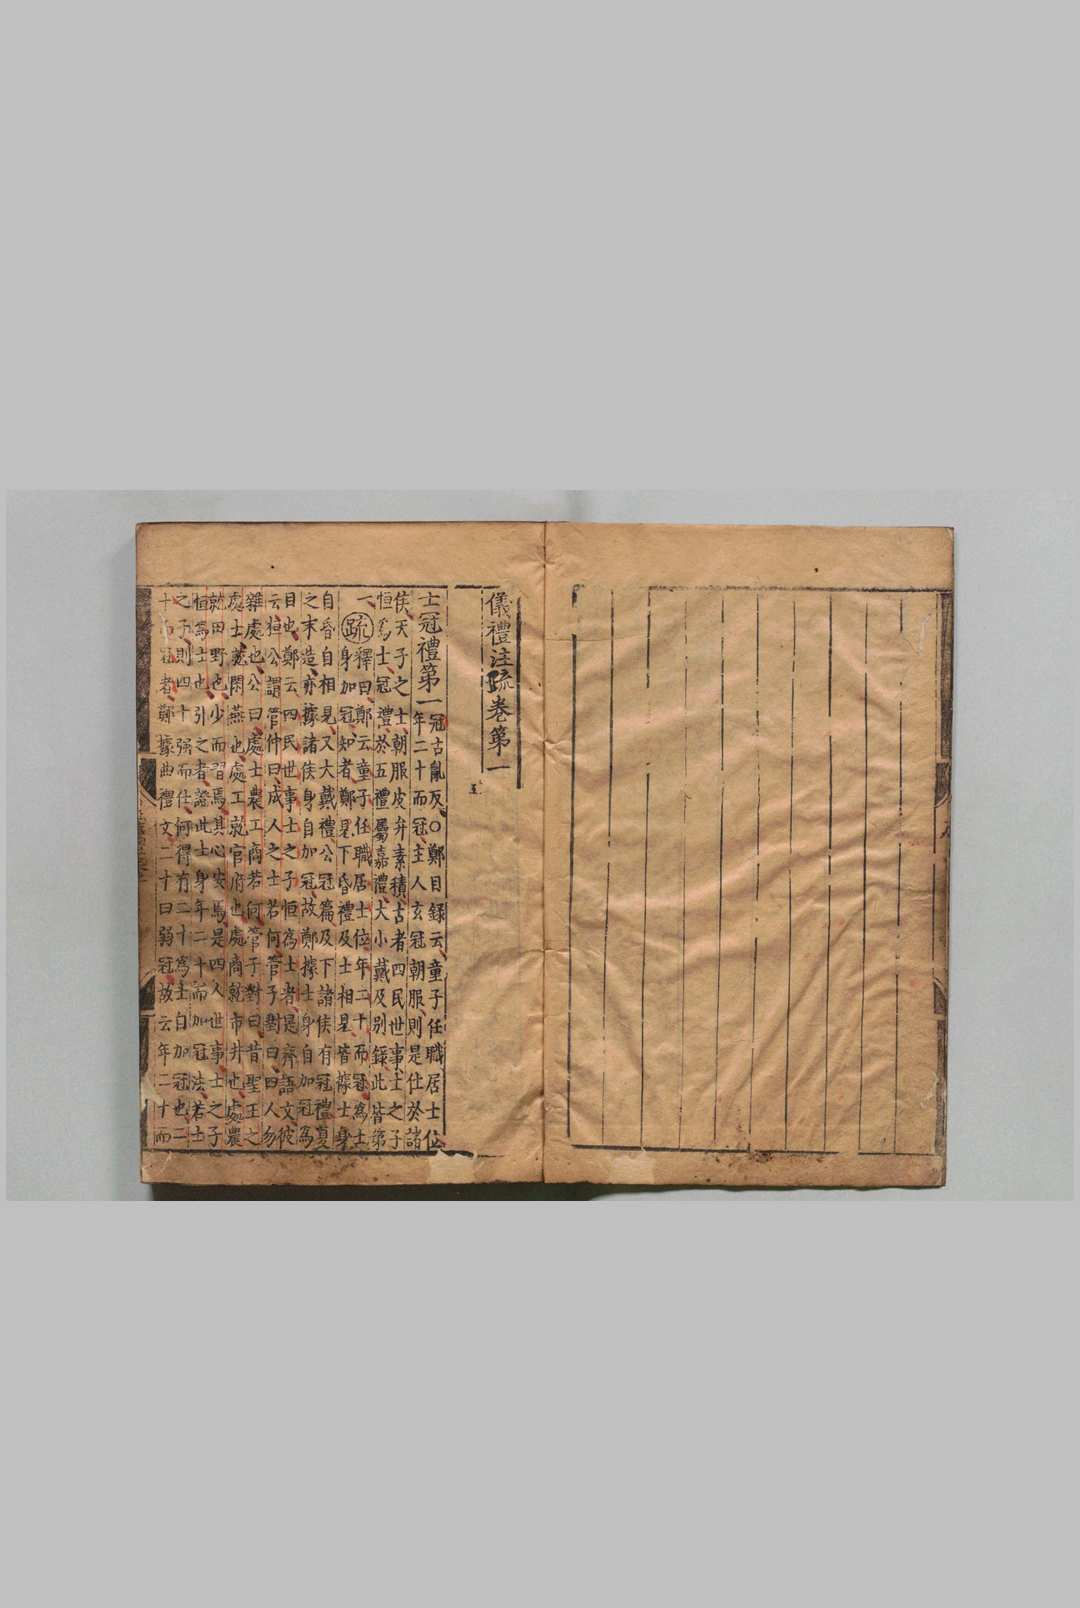 儀禮注疏卷第一
士冠禮第一
冠古亂反○鄭目録云童子任職居士位
年二十而冠主人玄冠朝服則是仕於諸
侯天子之士朝服皮弁素積古者四民世事士之子
恒為士冠禮於五禮屬嘉禮大小戴及别録此皆第
一疏釋曰鄭云童子任職居士位年二十而冠為士
身加冠知者鄭見下昏禮及士相見皆據士身
自昏自相見又大戴禮公冠篇及下諸侯有冠禮夏
之末造亦據諸侯身自加冠故鄭據士身自加冠為
目也鄭云四民世事士之子恒為士者是齊語文彼
云桓公謂管仲曰成人之士若何管子對曰四人勿
雜處也公曰處士農工商若何管子對曰昔聖王之
處士就閑燕也處工就官府也處商就市井也處農
就田野也少而習焉其心安焉是四人世事士之子
恒為士也引之者證此士身年二十而加冠法若士
之子則四十强而仕何得有二十為士自加冠也二
十而冠者鄭據曲禮文二十曰弱冠故云年二十而